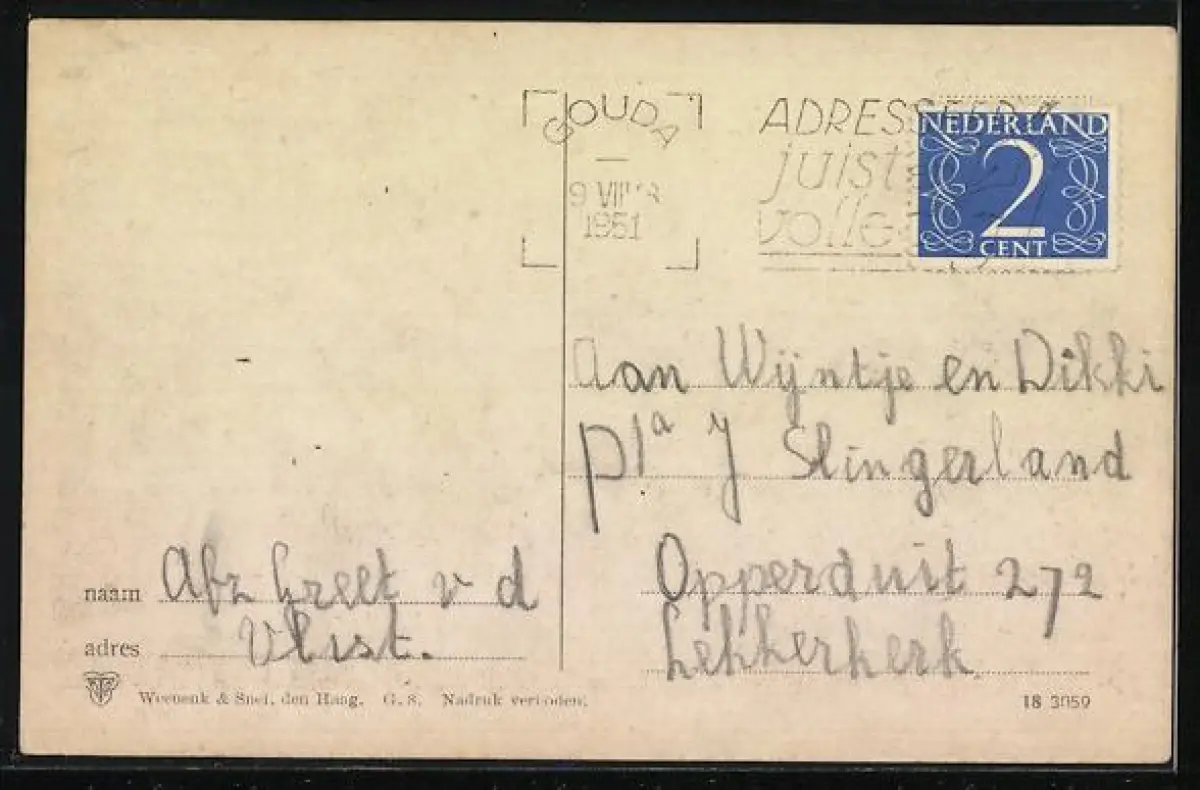 GOUDA
9 VIII 18
1951
ADRESSEER
juist
volle
NEDERLAND
2
CENT
Aan Wijntje en Dikki
p/a J Slingerland
Opperduit 272
Lekkerkerk
naam Afz Greet v d
adres Vlist.
Weenenk & Snel, den Haag. G. S. Nadruk verboden.
18 3059